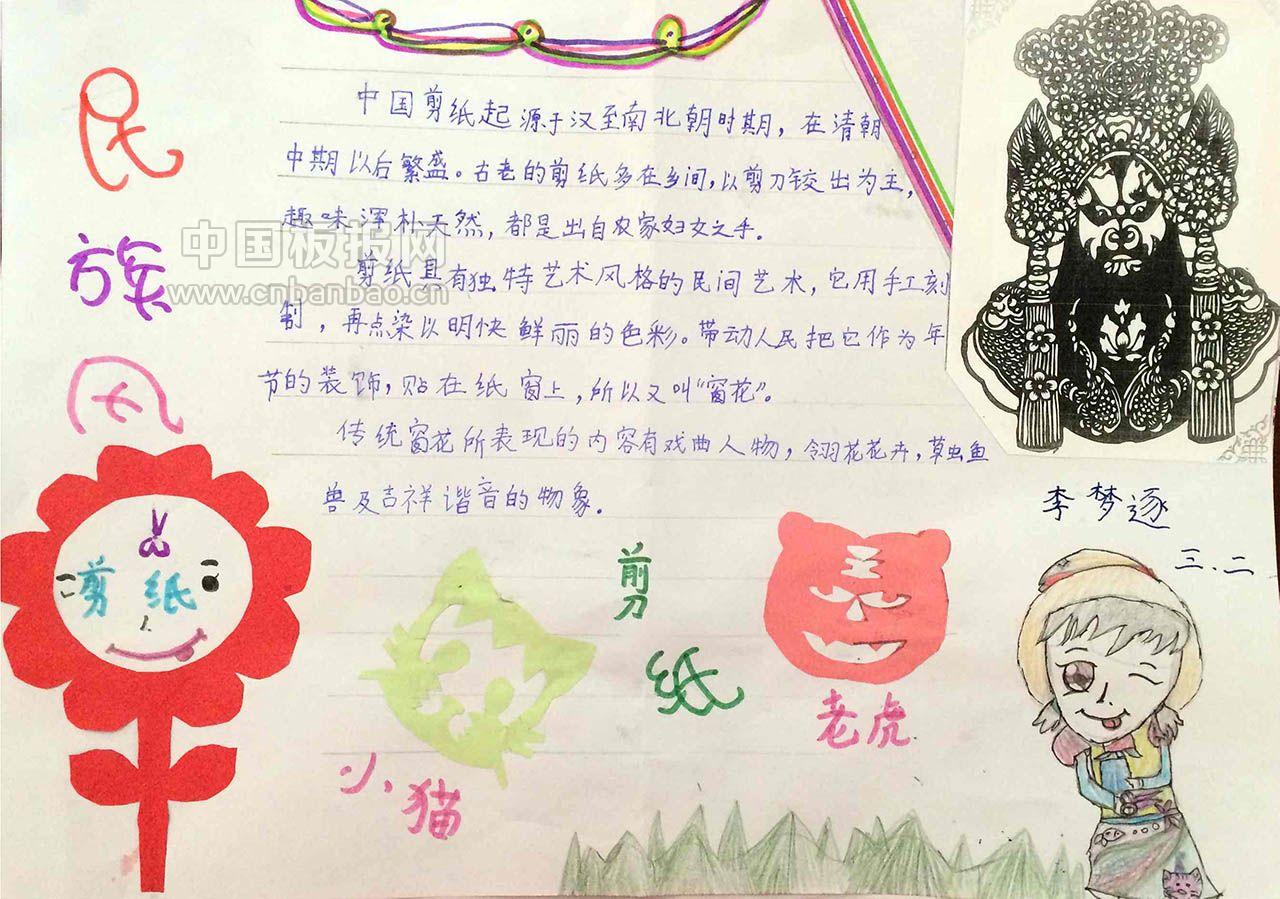 民
族
风
中国剪纸起源于汉至南北朝时期，在清朝
中期以后繁盛。古老的剪纸多在乡间，以剪刀铰出为主，
趣味浑朴天然，都是出自农家妇女之手.
剪纸具有独特艺术风格的民间艺术，它用手工刻
制，再点染以明快鲜丽的色彩。带动人民把它作为年
节的装饰，贴在纸窗上，所以又叫“窗花”。
传统窗花所表现的内容有戏曲人物，翎花花卉，草虫鱼
兽及吉祥谐音的物象.
中国板报网
www.cnbanbao.cn
李梦逐
三.二
剪纸
剪
纸
小猫
老虎